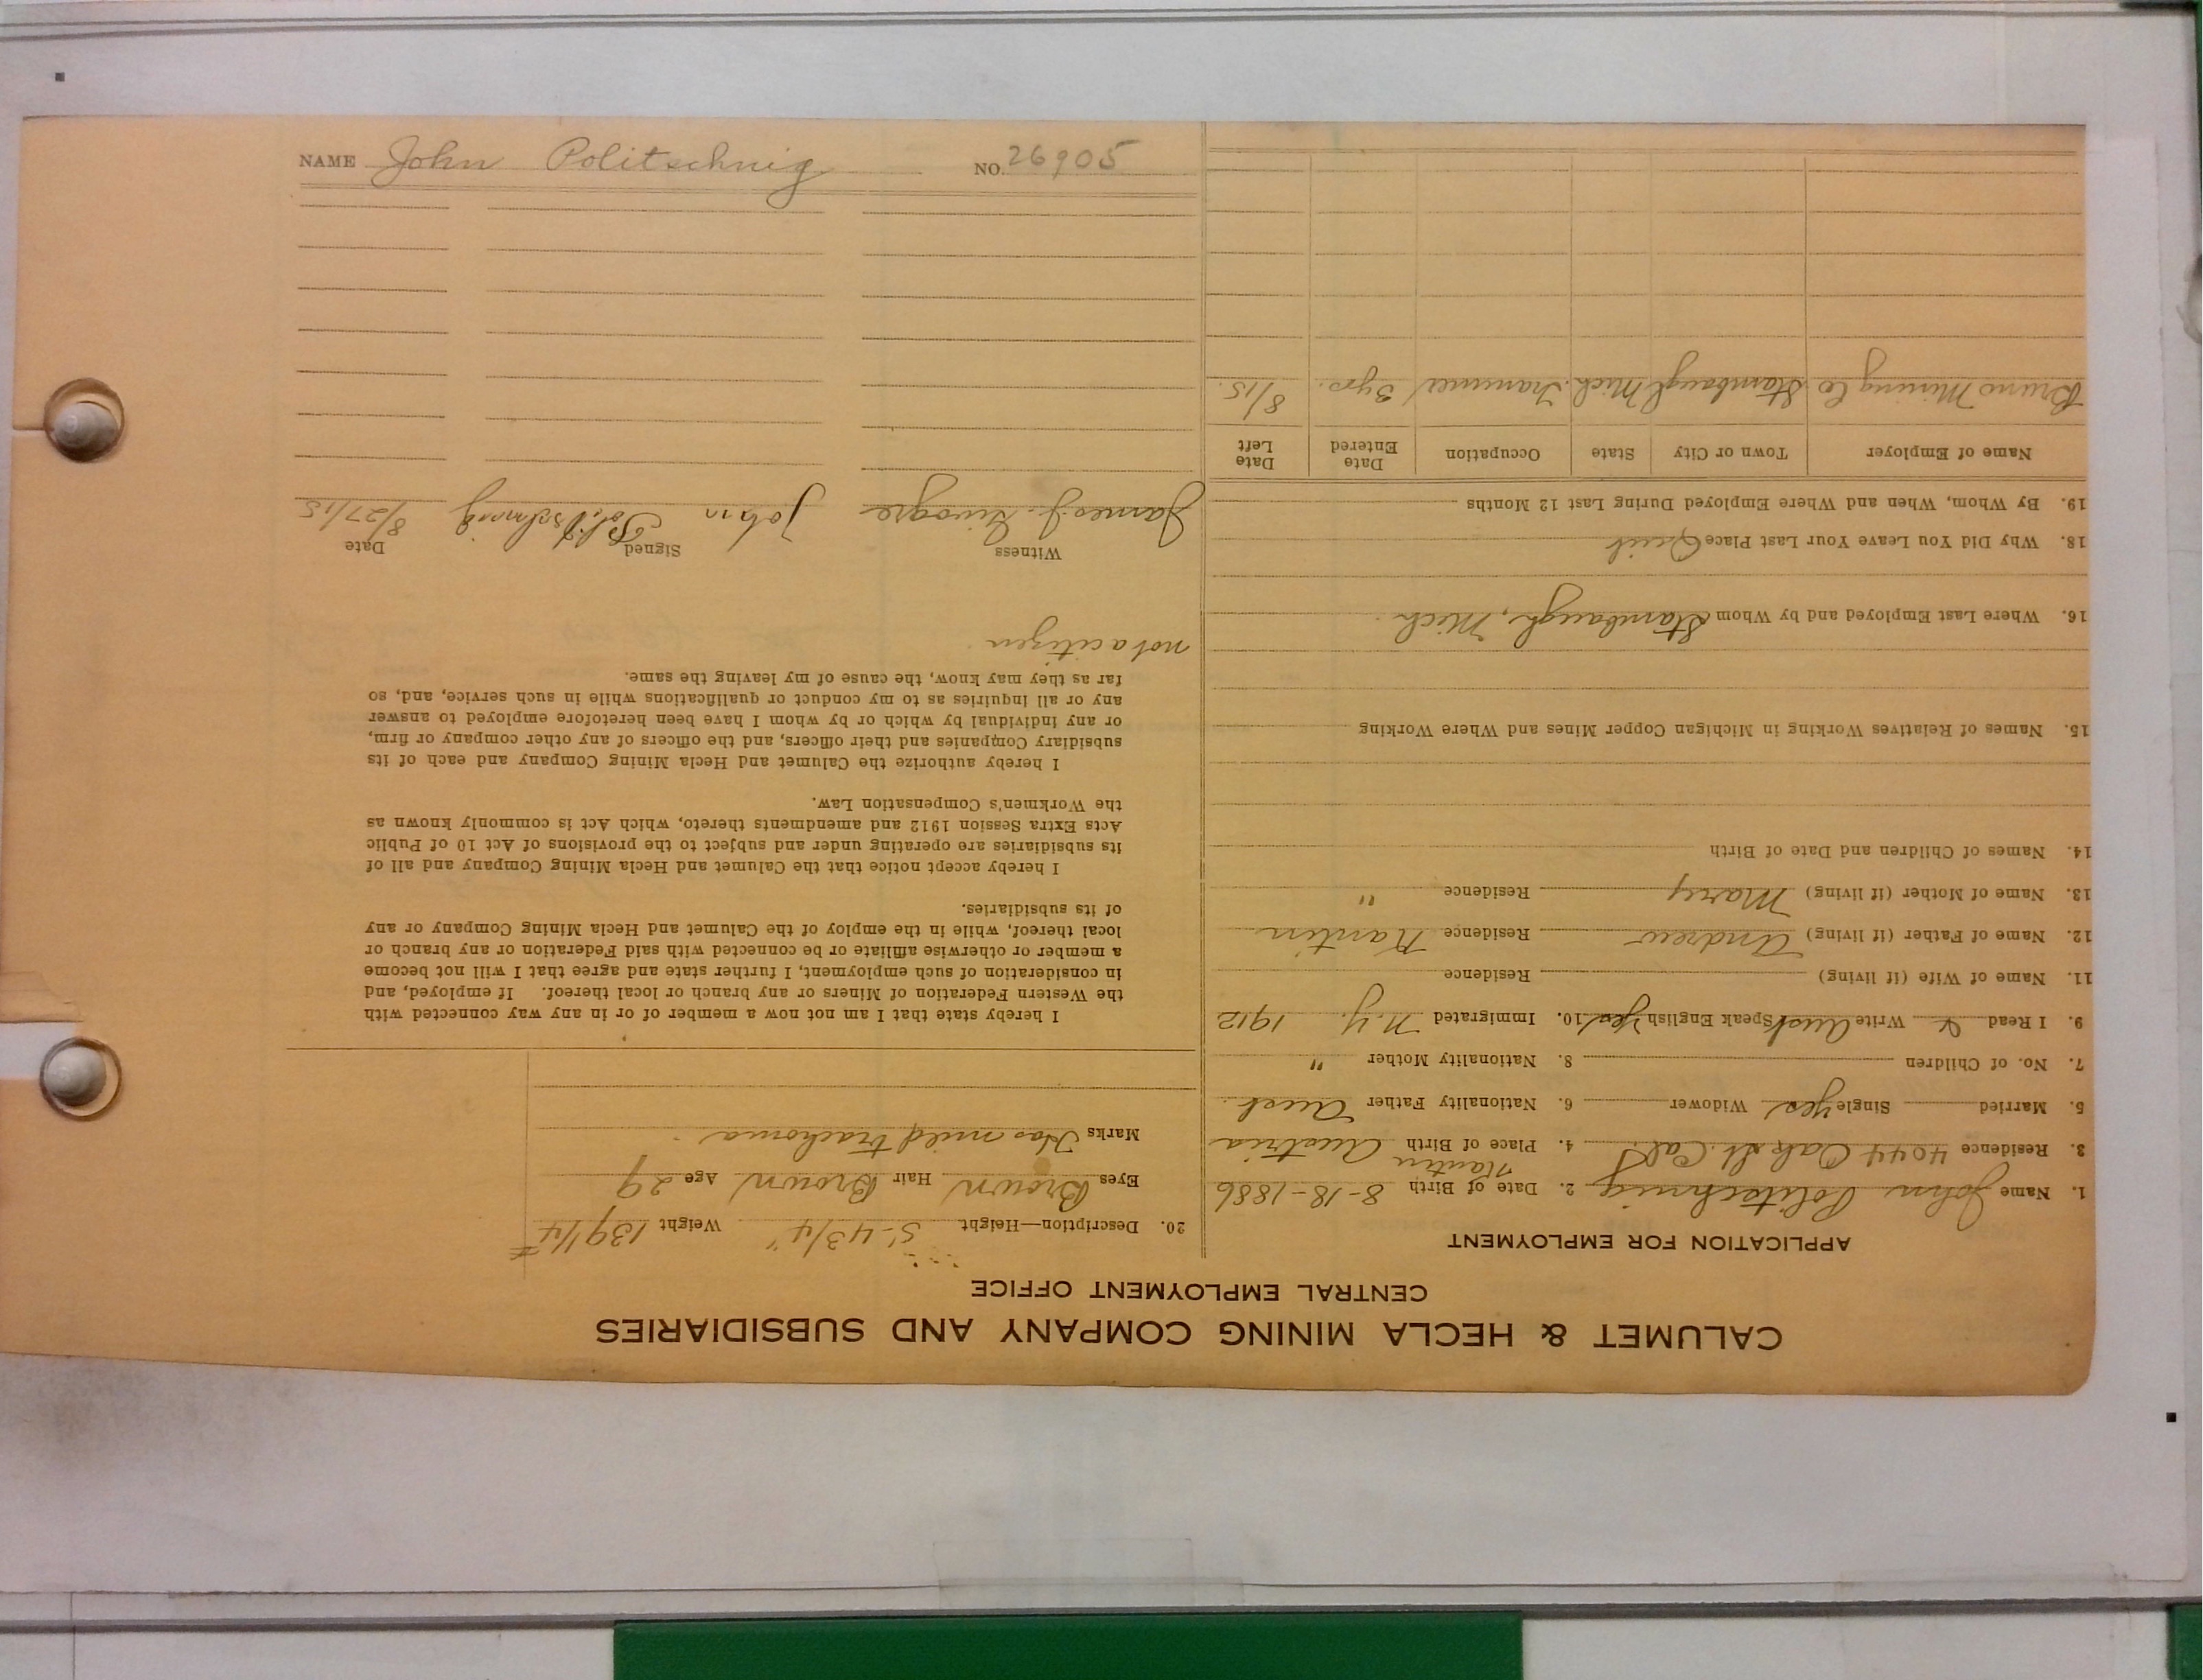 CALUMET & HECLA MINING COMPANY AND SUBSIDIARIES
CENTRAL EMPLOYMENT OFFICE
APPLICATION FOR EMPLOYMENT
1. Name John Politschnig 2. Date of Birth 8-18-1886
3. Residence 4044 Oak St. Cal. 4. Place of Birth Austria
5. Married Single Yes Widower 6. Nationality Father Aust.
7. No. of Children 8. Nationality Mother "
9. I Read & Write Aust Speak English Yes 10. Immigrated N.Y. 1912
11. Name of Wife (if living) Residence
12. Name of Father (if living) Andrew Residence
13. Name of Mother (if living) Mary Residence "
14. Names of Children and Date of Birth
15. Names of Relatives Working in Michigan Copper Mines and Where Working
16. Where Last Employed and by Whom Stambaugh, Mich.
18. Why Did You Leave Your Last Place Quit
19. By Whom, When and Where Employed During Last 12 Months
Name of Employer Town or City State Occupation Date Entered Date Left
Bruno Mining Co Stambaugh Mich. Trammer 3 yrs. 8/15.
20. Description—Height 5'-4 3/4" Weight 139 1/4 #
Eyes Brown Hair Brown Age 29
Marks Has mild trachoma
I hereby state that I am not now a member of or in any way connected with
the Western Federation of Miners or any branch or local thereof. If employed, and
in consideration of such employment, I further state and agree that I will not become
a member or otherwise affiliate or be connected with said Federation or any branch or
local thereof, while in the employ of the Calumet and Hecla Mining Company or any
of its subsidiaries.
I hereby accept notice that the Calumet and Hecla Mining Company and all of
its subsidiaries are operating under and subject to the provisions of Act 10 of Public
Acts Extra Session 1912 and amendments thereto, which Act is commonly known as
the Workmen's Compensation Law.
I hereby authorize the Calumet and Hecla Mining Company and each of its
subsidiary Companies and their officers, and the officers of any other company or firm,
or any individual by which or by whom I have been heretofore employed to answer
any or all inquiries as to my conduct or qualifications while in such service, and, so
far as they may know, the cause of my leaving the same.
not a citizen
Witness Signed Date
James J. John Politschnig 8/27/15
NAME John Politschnig NO. 26905